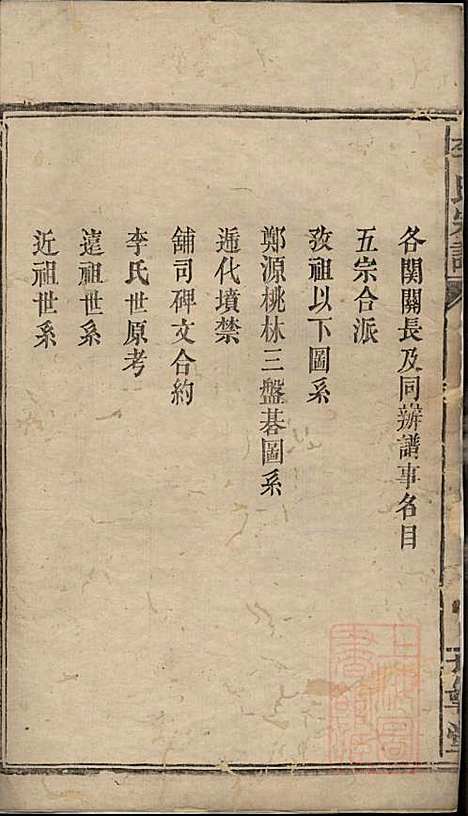 各関關長及同辦譜事名目
五宗合派
敦祖以下圖系
鄭源桃林三盤碁圖系
遞代墳禁
鋪司碑文合約
李氏世原考
遠祖世系
近祖世系
李氏宗譜